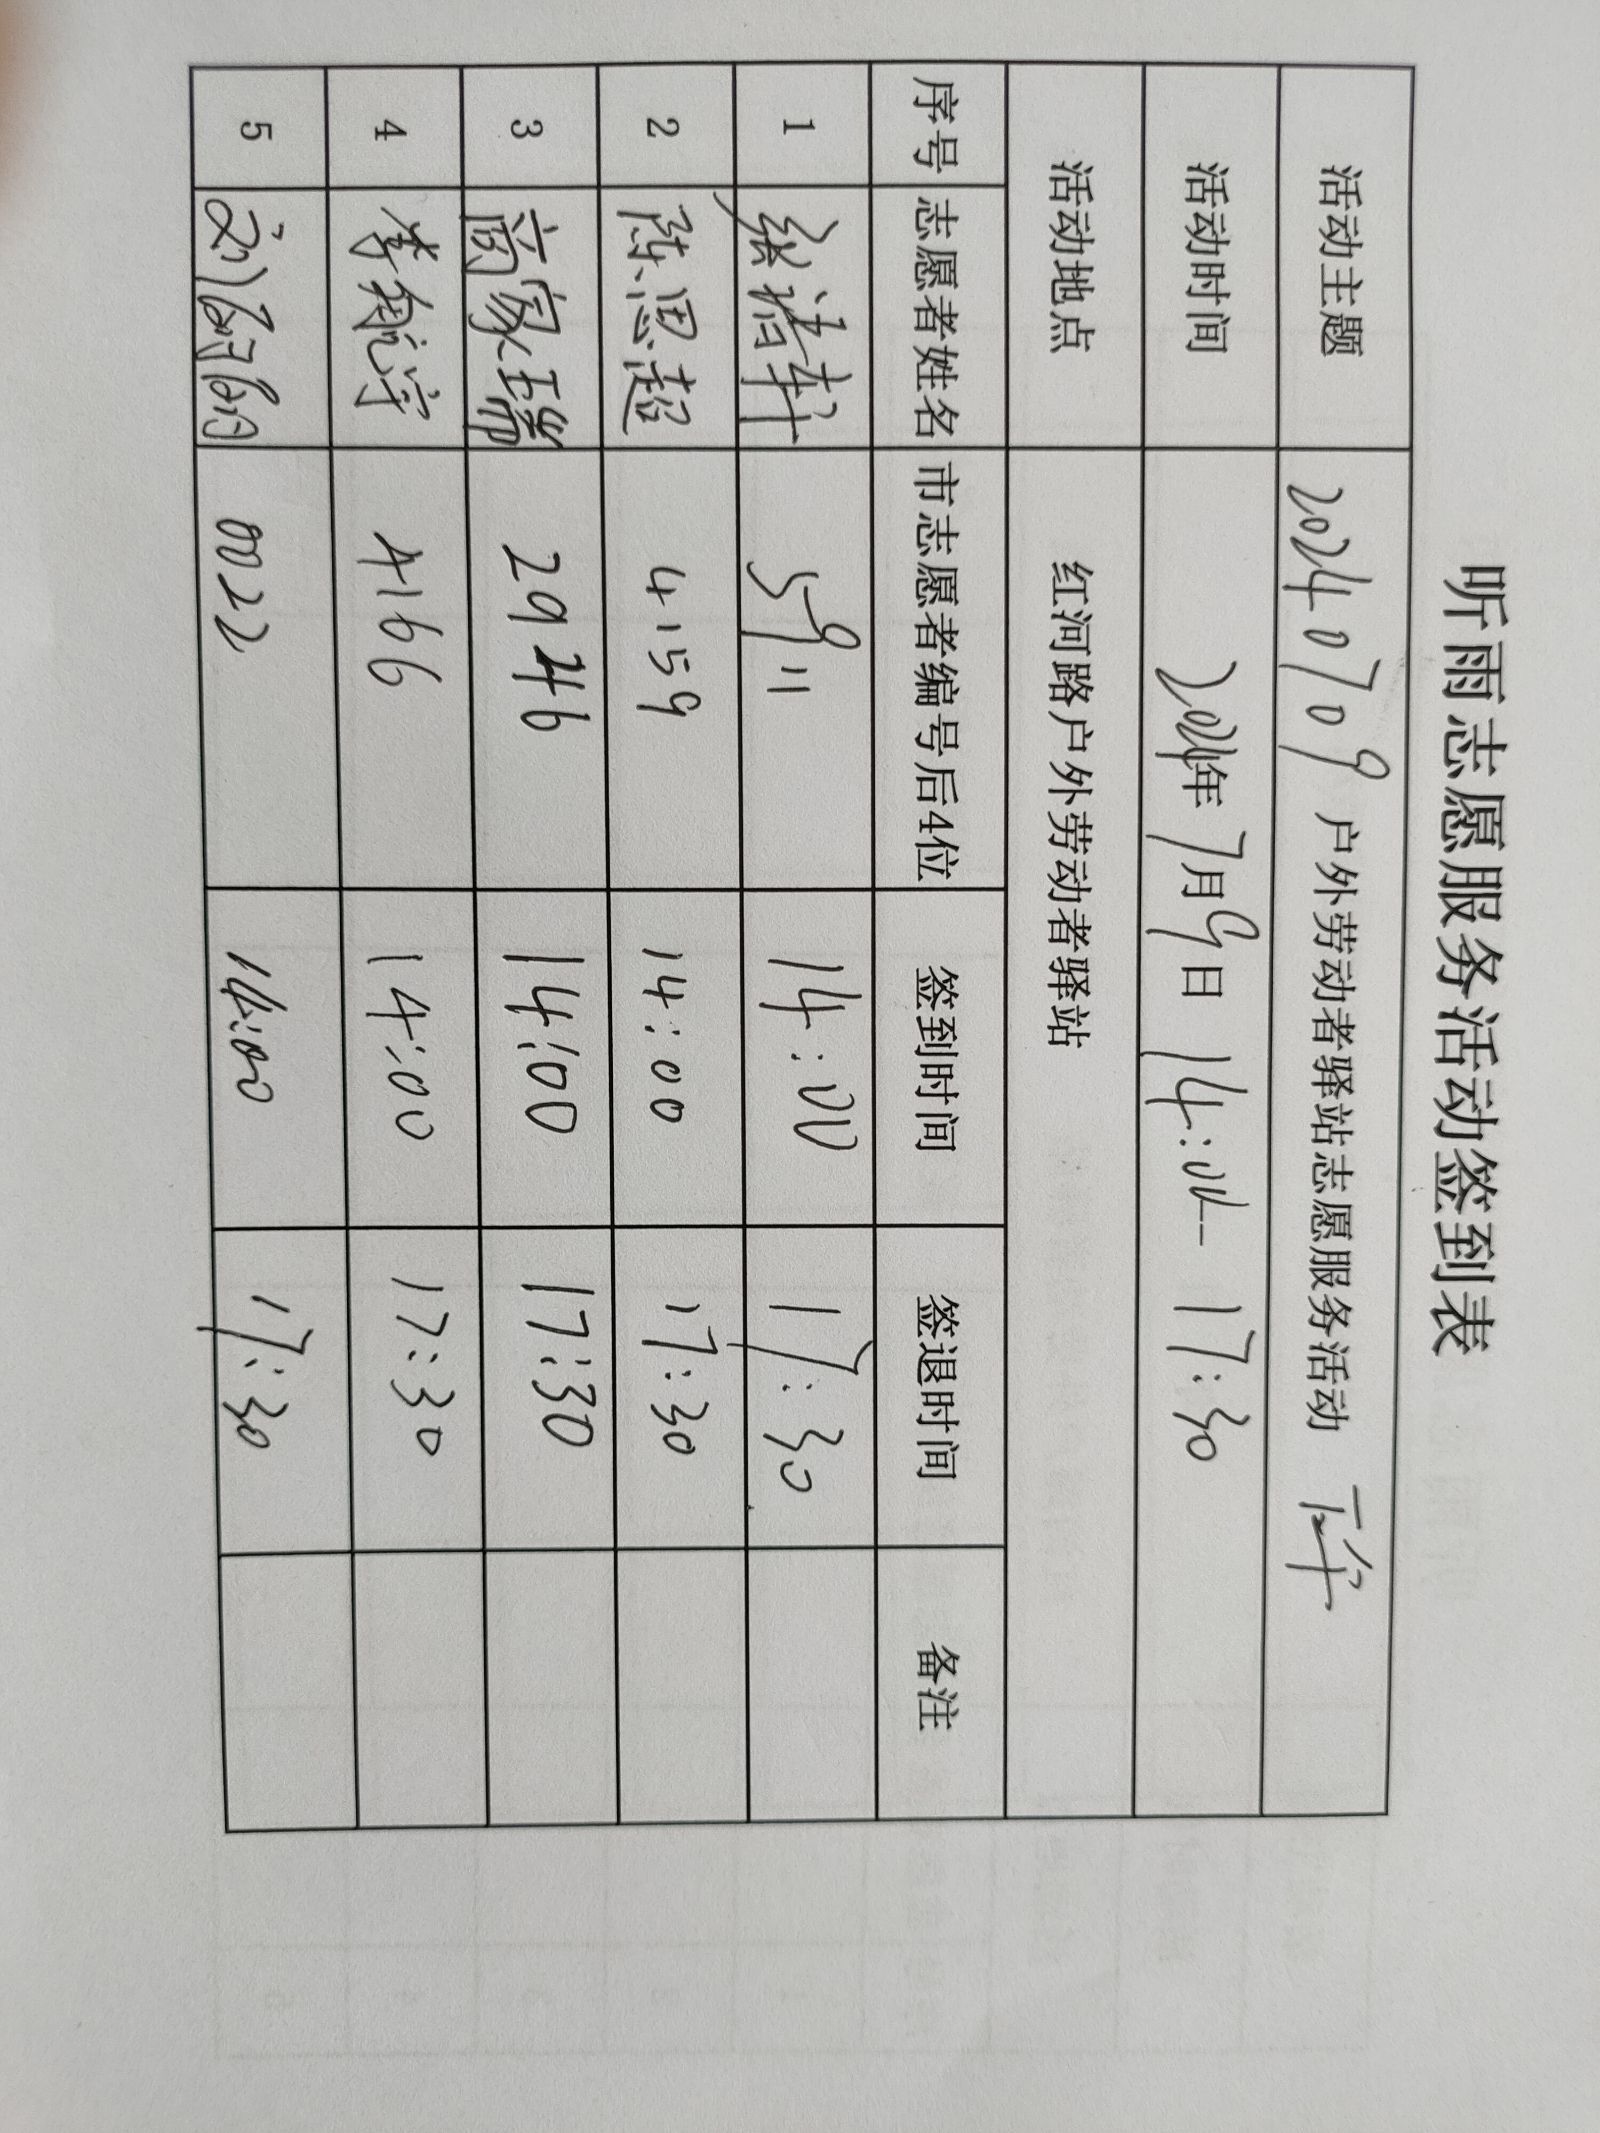 听雨志愿服务活动签到表
活动主题 20240709 户外劳动者驿站志愿服务活动 下午
活动时间 2024年7月9日 14:00—17:30
活动地点 红河路户外劳动者驿站
序号 志愿者姓名 市志愿者编号后4位 签到时间 签退时间 备注
1 5911 14:00 17:30
2 陈思超 4159 14:00 17:30
3 商家瑞 2946 14:00 17:30
4 李航宇 4166 14:00 17:30
5 0022 14:00 17:30